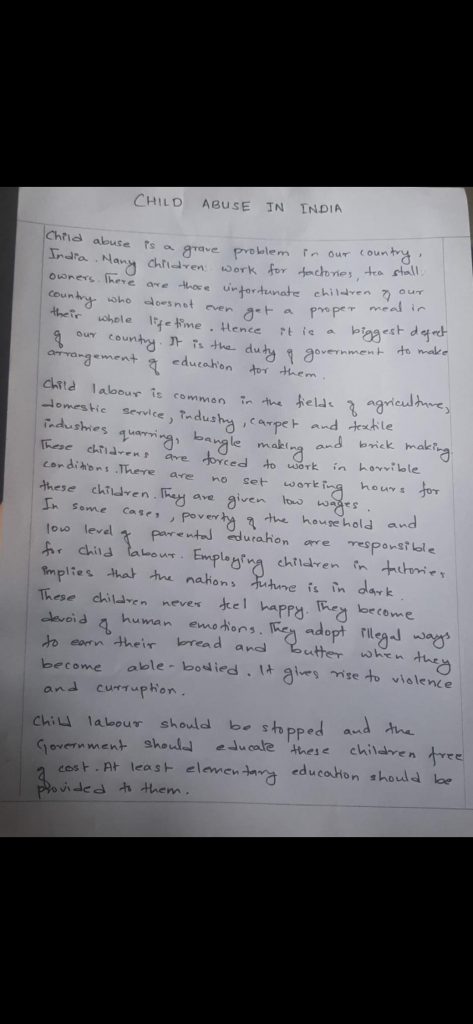 CHILD ABUSE IN INDIA
Child abuse is a grave problem in our country,
India. Many Children work for factories, tea stall
owners. There are those unfortunate children of our
country who doesnot even get a proper meal in
their whole lifetime. Hence it is a biggest defect
of our country. It is the duty of government to make
arrangement of education for them.
Child labour is common in the fields of agriculture,
domestic service, industry, carpet and textile
industries quarring, bangle making and brick making
These childrens are forced to work in horrible
conditions. There are no set working hours for
these children. They are given low wages.
In some cases, poverty of the household and
low level of parental education are responsible
for child labour. Employing children in factories
implies that the nations future is in dark.
These children never feel happy. They become
devoid of human emotions. They adopt illegal ways
to earn their bread and butter when they
become able-bodied. It gives rise to violence
and curruption.
Child labour should be stopped and the
Government should educate these children free
of cost. At least elementary education should be
provided to them.